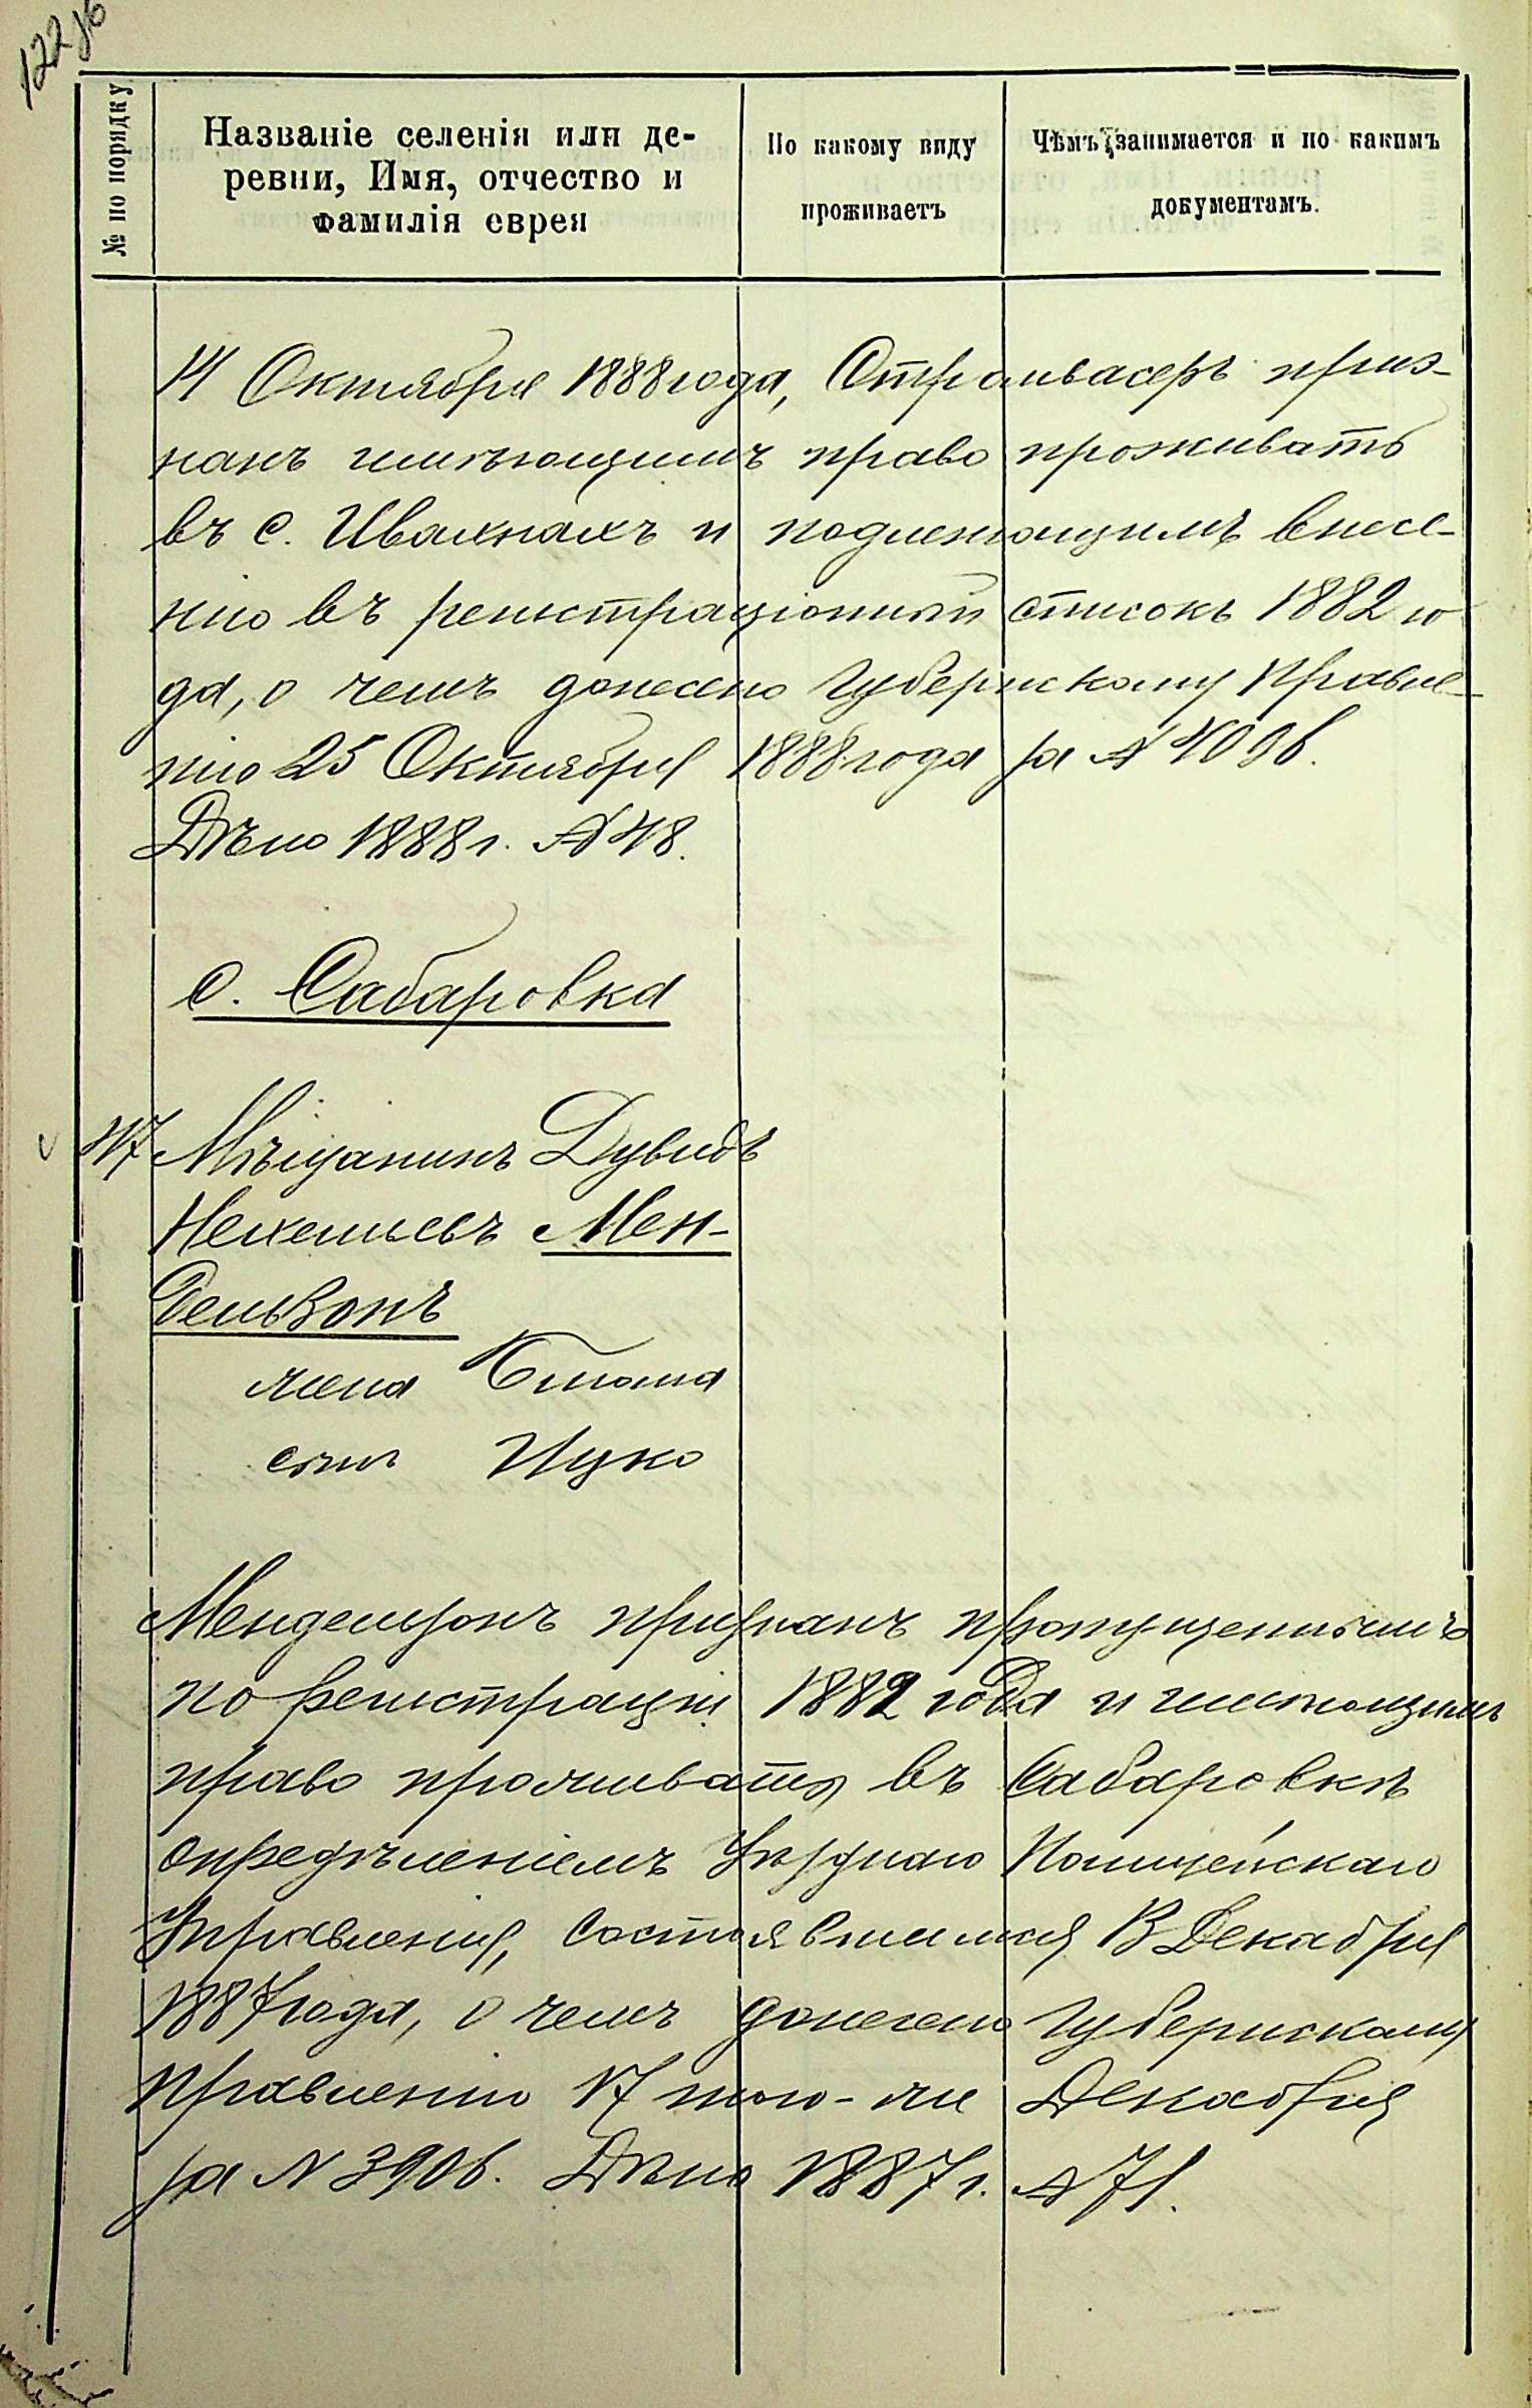 122 об
№ по порядку
Названіе селенія или де-
ревни, Имя, отчество и
фамилія еврея
По какому виду
проживаетъ
Чѣмъ занимается и по какимъ
документамъ.
14 Октября 1888 года, Стральвасеръ приз-
нанъ имѣющимъ право проживать
въ с. Ивахнахъ и подлежащимъ внесе-
нію въ регистраціонный списокъ 1882 го
да, о чемъ донесено Губернскому Правле-
нію 25 Октября 1888 года за № 4096.
Дѣло 1888 г. № 48.
с. Сабаровка
117 Мѣщанинъ Дувидъ
Нехемьевъ Мен-
дельзонъ
жена
сынъ Ицко
Мендельзонъ признанъ пропущеннымъ
по регистраціи 1882 года и имѣющимъ
право проживать въ Сабаровкѣ
опредѣленіемъ Уѣзднаго Полицейскаго
Управленія, состоявшимся Декабря
1887 года, о чемъ донесено Губернскому
Правленію 17 того-же Декабря
за № 3906. Дѣло 1887 г. № 71.